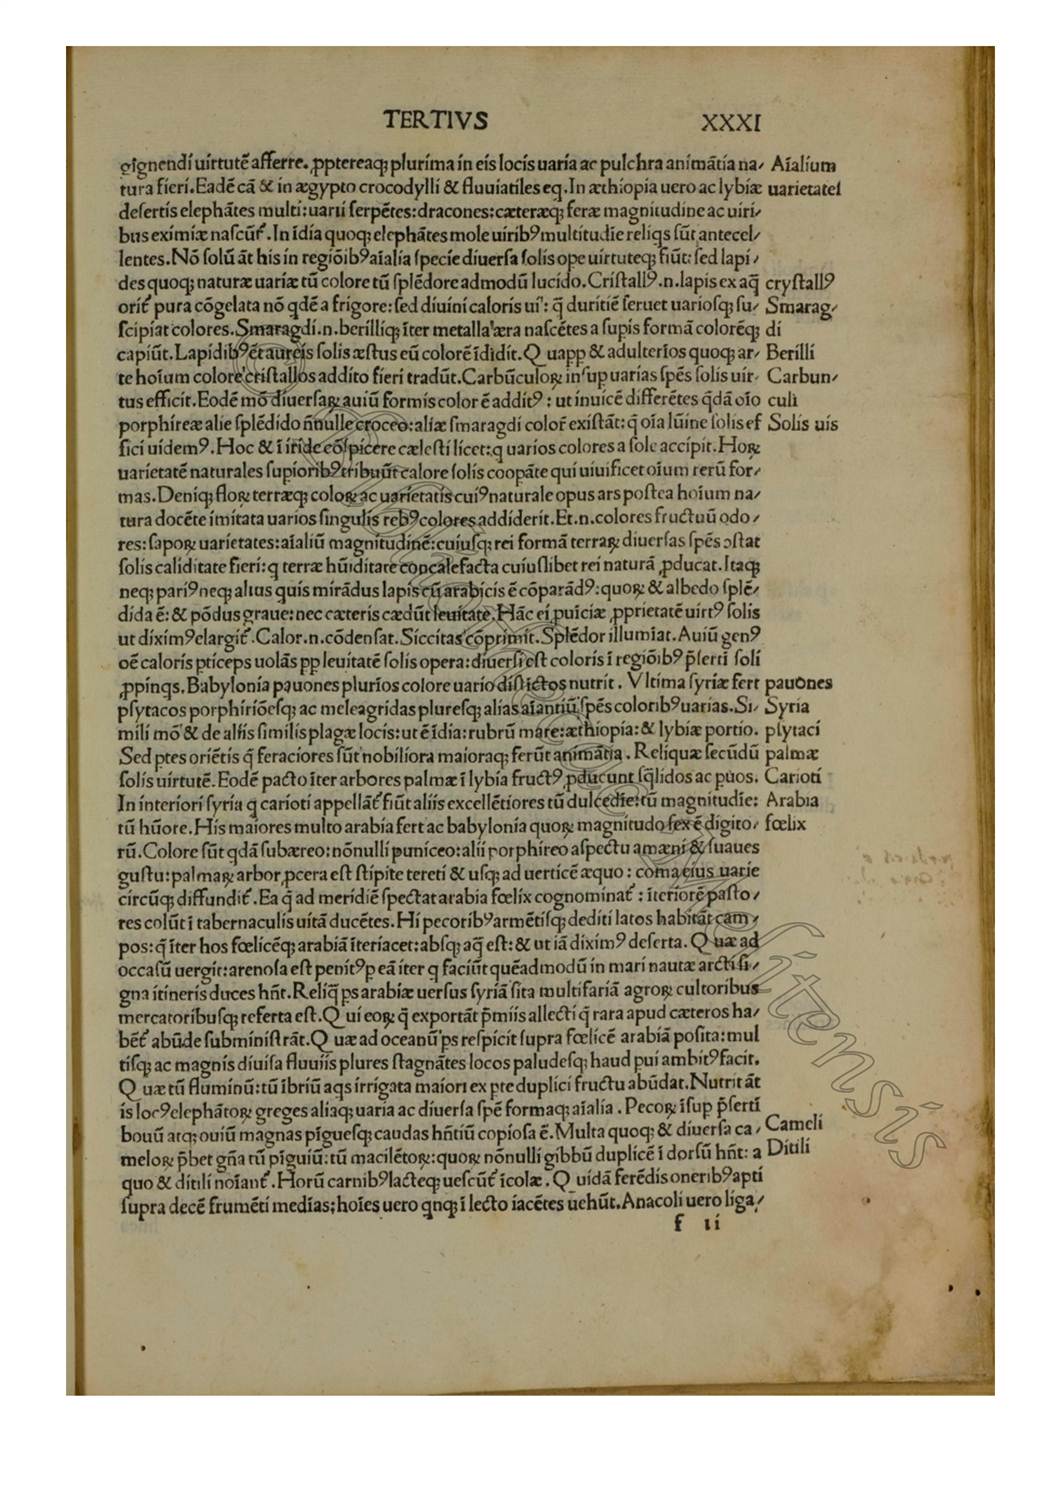 TERTIVS XXXI
gignendi uirtutē afferre. ꝓptereaqꝫ plurima in eis locis uaria ac pulchra animātia na/ Aīalium
tura fieri. Eadē cā & in ægypto crocodylli & fluuiatiles eq. In æthiopia uero ac lybiæ uarietates
desertis elephātes multi: uarii serpētes: dracones: cæteræqꝫ feræ magnitudine ac uiri/
bus eximiæ nascūt᷑. In īdia quoqꝫ elephātes mole uiribꝰ multitudīe reliqs sūt antecel/
lentes. Nō solū āt his in regiōibꝰ aīalia specie diuersa solis ope uirtuteqꝫ fiūt: sed lapi/
des quoqꝫ naturæ uariæ tū colore tū splēdore admodū lucido. Cristallꝰ .n. lapis ex aq̄ crystallꝰ
orit᷑ pura cōgelata nō qdē a frigore: sed diuini caloris ui: q̄ duritiē seruet uariosqꝫ su/ Smarag/
scipiat colores. Smaragdi .n. berilliqꝫ īter metalla æra nascētes a supis formā colorēqꝫ di
capiūt. Lapidibꝰ ēt aureis solis æstus eū colorē īdidit. Quapp & adulterios quoqꝫ ar/ Berilli
te hoīum colore cristallos addito fieri tradūt. Carbūculoꝝ insup uarias spēs solis uir/ Carbun/
tus efficit. Eodē mō diuersaꝝ auiū formis color ē additꝰ: ut inuicē differētes qdā oīo culi
porphireæ alie splēdido n̄nulle croceo: aliæ smaragdi color᷑ existāt: q̄ oīa lūine solis ef Solis uis
fici uidemꝰ. Hoc & ī iride cōspicere cælesti licet: q uarios colores a sole accipit. Hoꝝ
uarietatē naturales supioribꝰ tribuūt calore solis coopāte qui uiuificet oīum rerū for/
mas. Deniqꝫ floꝝ terræqꝫ coloꝝ ac uarietatis cuiꝰ naturale opus ars postea hoīum na/
tura docēte imitata uarios singulis rebꝰ colores addiderit. Et .n. colores fructuū odo/
res: sapoꝝ uarietates: aīaliū magnitudinē: cuiusqꝫ rei formā terraꝝ diuersas spēs ɔstat
solis caliditate fieri: q terræ hūiditate concalefacta cuiuslibet rei naturā ꝓducat. Itaqꝫ
neqꝫ pariꝰ neqꝫ altus quis mirādus lapis cū arabicis ē cōparādꝰ: quoꝝ & albedo splē/
dida ē: & pōdus graue: nec cæteris cædūt leuitate. Hāc ei puīciæ ꝓprietatē uirtꝰ solis
ut diximꝰ elargit᷑. Calor .n. cōdensat. Siccitas cōprimit. Splēdor illumīat. Auiū genꝰ
oē caloris pticeps uolās pp leuitatē solis opera: diuersi est coloris ī regiōibꝰ p̄serti soli
ꝓpinqs. Babylonia pauones plurīos colore uario distictos nutrit. Vltima syriæ fert pauones
psytacos porphiriōesqꝫ ac meleagridas pluresqꝫ alias aīantiū spēs coloribꝰ uarias. Si/ Syria
mili mō & de aliis similis plagæ locis: ut ē īdia: rubrū mare: æthiopia: & lybiæ portio. psytaci
Sed ptes oriētis q̄ feraciores sūt nobiliora maioraqꝫ ferūt animātia. Reliquæ secūdū palmæ
solis uirtutē. Eodē pacto īter arbores palmæ ī lybia fructꝰ ꝓducunt sq̄lidos ac puos. Carioti
In interiori syria q̄ carioti appellāt᷑ fiūt aliis excellētiores tū dulcedīe: tū magnitudīe: Arabia
tū hūore. His maiores multo arabia fert ac babylonia quoꝝ magnitudo sex ē digito/ fœlix
rū. Colore sūt qdā subæreo: nōnulli puniceo: alii porphireo aspectu amæni & suaues
gustu: palmaꝝ arbor ꝓcera est stipite tereti & usqꝫ ad uerticē æquo: coma eius uarie
circūqꝫ diffundit᷑. Ea q̄ ad meridiē spectat arabia fœlix cognominat᷑: īteriorē pasto/
res colūt ī tabernaculis uitā ducētes. Hi pecoribꝰ armētisqꝫ dediti latos habitāt cam/
pos: q̄ īter hos fœlicēqꝫ arabiā īteriacet: absqꝫ aq̄ est: & ut iā diximꝰ deserta. Quæ ad
occasū uergit: arenosa est penitꝰ p eā iter q faciūt quēadmodū in mari nautæ arcti si/
gna itineris duces hn̄t. Reliq̄ ps arabiæ uersus syriā sita multifariā agroꝝ cultoribus
mercatoribusqꝫ referta est. Qui eoꝝ q̄ exportāt p̄miis allecti q̄ rara apud cæteros ha/
bēt᷑ abūde subministrāt. Quæ ad oceanū ps respicit supra fœlicē arabiā posita: mul
tisqꝫ ac magnis diuisa fluuiis plures stagnātes locos paludesqꝫ haud pui ambitꝰ facit.
Quæ tū fluminū: tū ibriū aqs irrigata maiori ex pte duplici fructu abūdat. Nutrit āt
is locꝰ elephātoꝝ greges aliaqꝫ uaria ac diuersa spē formaqꝫ aīalia. Pecoꝝ īsup p̄serti
bouū atqꝫ ouiū magnas pīguesqꝫ caudas hn̄tiū copiosa ē. Multa quoqꝫ & diuersa ca/ Cameli
meloꝝ p̄bet gn̄a tū pīguiū: tū macilētoꝝ: quoꝝ nōnulli gibbū duplicē ī dorsū hn̄t: a Ditili
quo & ditili noīant᷑. Horū carnibꝰ lacteqꝫ uescūt᷑ īcolæ. Quidā ferēdis oneribꝰ apti
supra decē frumēti medias; hoīes uero qnqꝫ ī lecto iacētes uehūt. Anacoli uero liga/
f ii